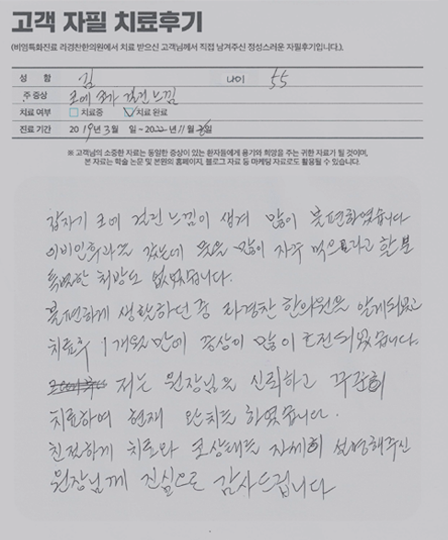 고객 자필 치료후기
(비염특화진료 라경찬한의원에서 치료 받으신 고객님께서 직접 남겨주신 정성스러운 자필후기입니다.)
성 함 김 나이 55
주 증상 코에 뭐가 걸린 느낌
치료 여부 치료중 치료 완료
진료 기간 2019년 3월 일 ~ 2022년 11월 일
※ 고객님의 소중한 자료는 동일한 증상이 있는 환자들에게 용기와 희망을 주는 귀한 자료가 될 것이며,
본 자료는 학술 논문 및 본원의 홈페이지, 블로그 자료 등 마케팅 자료로도 활용될 수 있습니다.
갑자기 코에 걸린 느낌이 생겨 많이 불편하였습니다
이비인후과도 갔는데 물을 많이 자주 먹으라고 할 뿐
특별한 처방도 없었습니다.
불편하게 생활하던 중 라경찬 한의원을 알게되었고
치료후 1개월 만에 증상이 많이 호전되었습니다.
저는 원장님을 신뢰하고 꾸준히
치료하여 현재 완치를 하였습니다.
친절하게 치료와 코상태를 자세히 설명해주신
원장님께 진심으로 감사드립니다